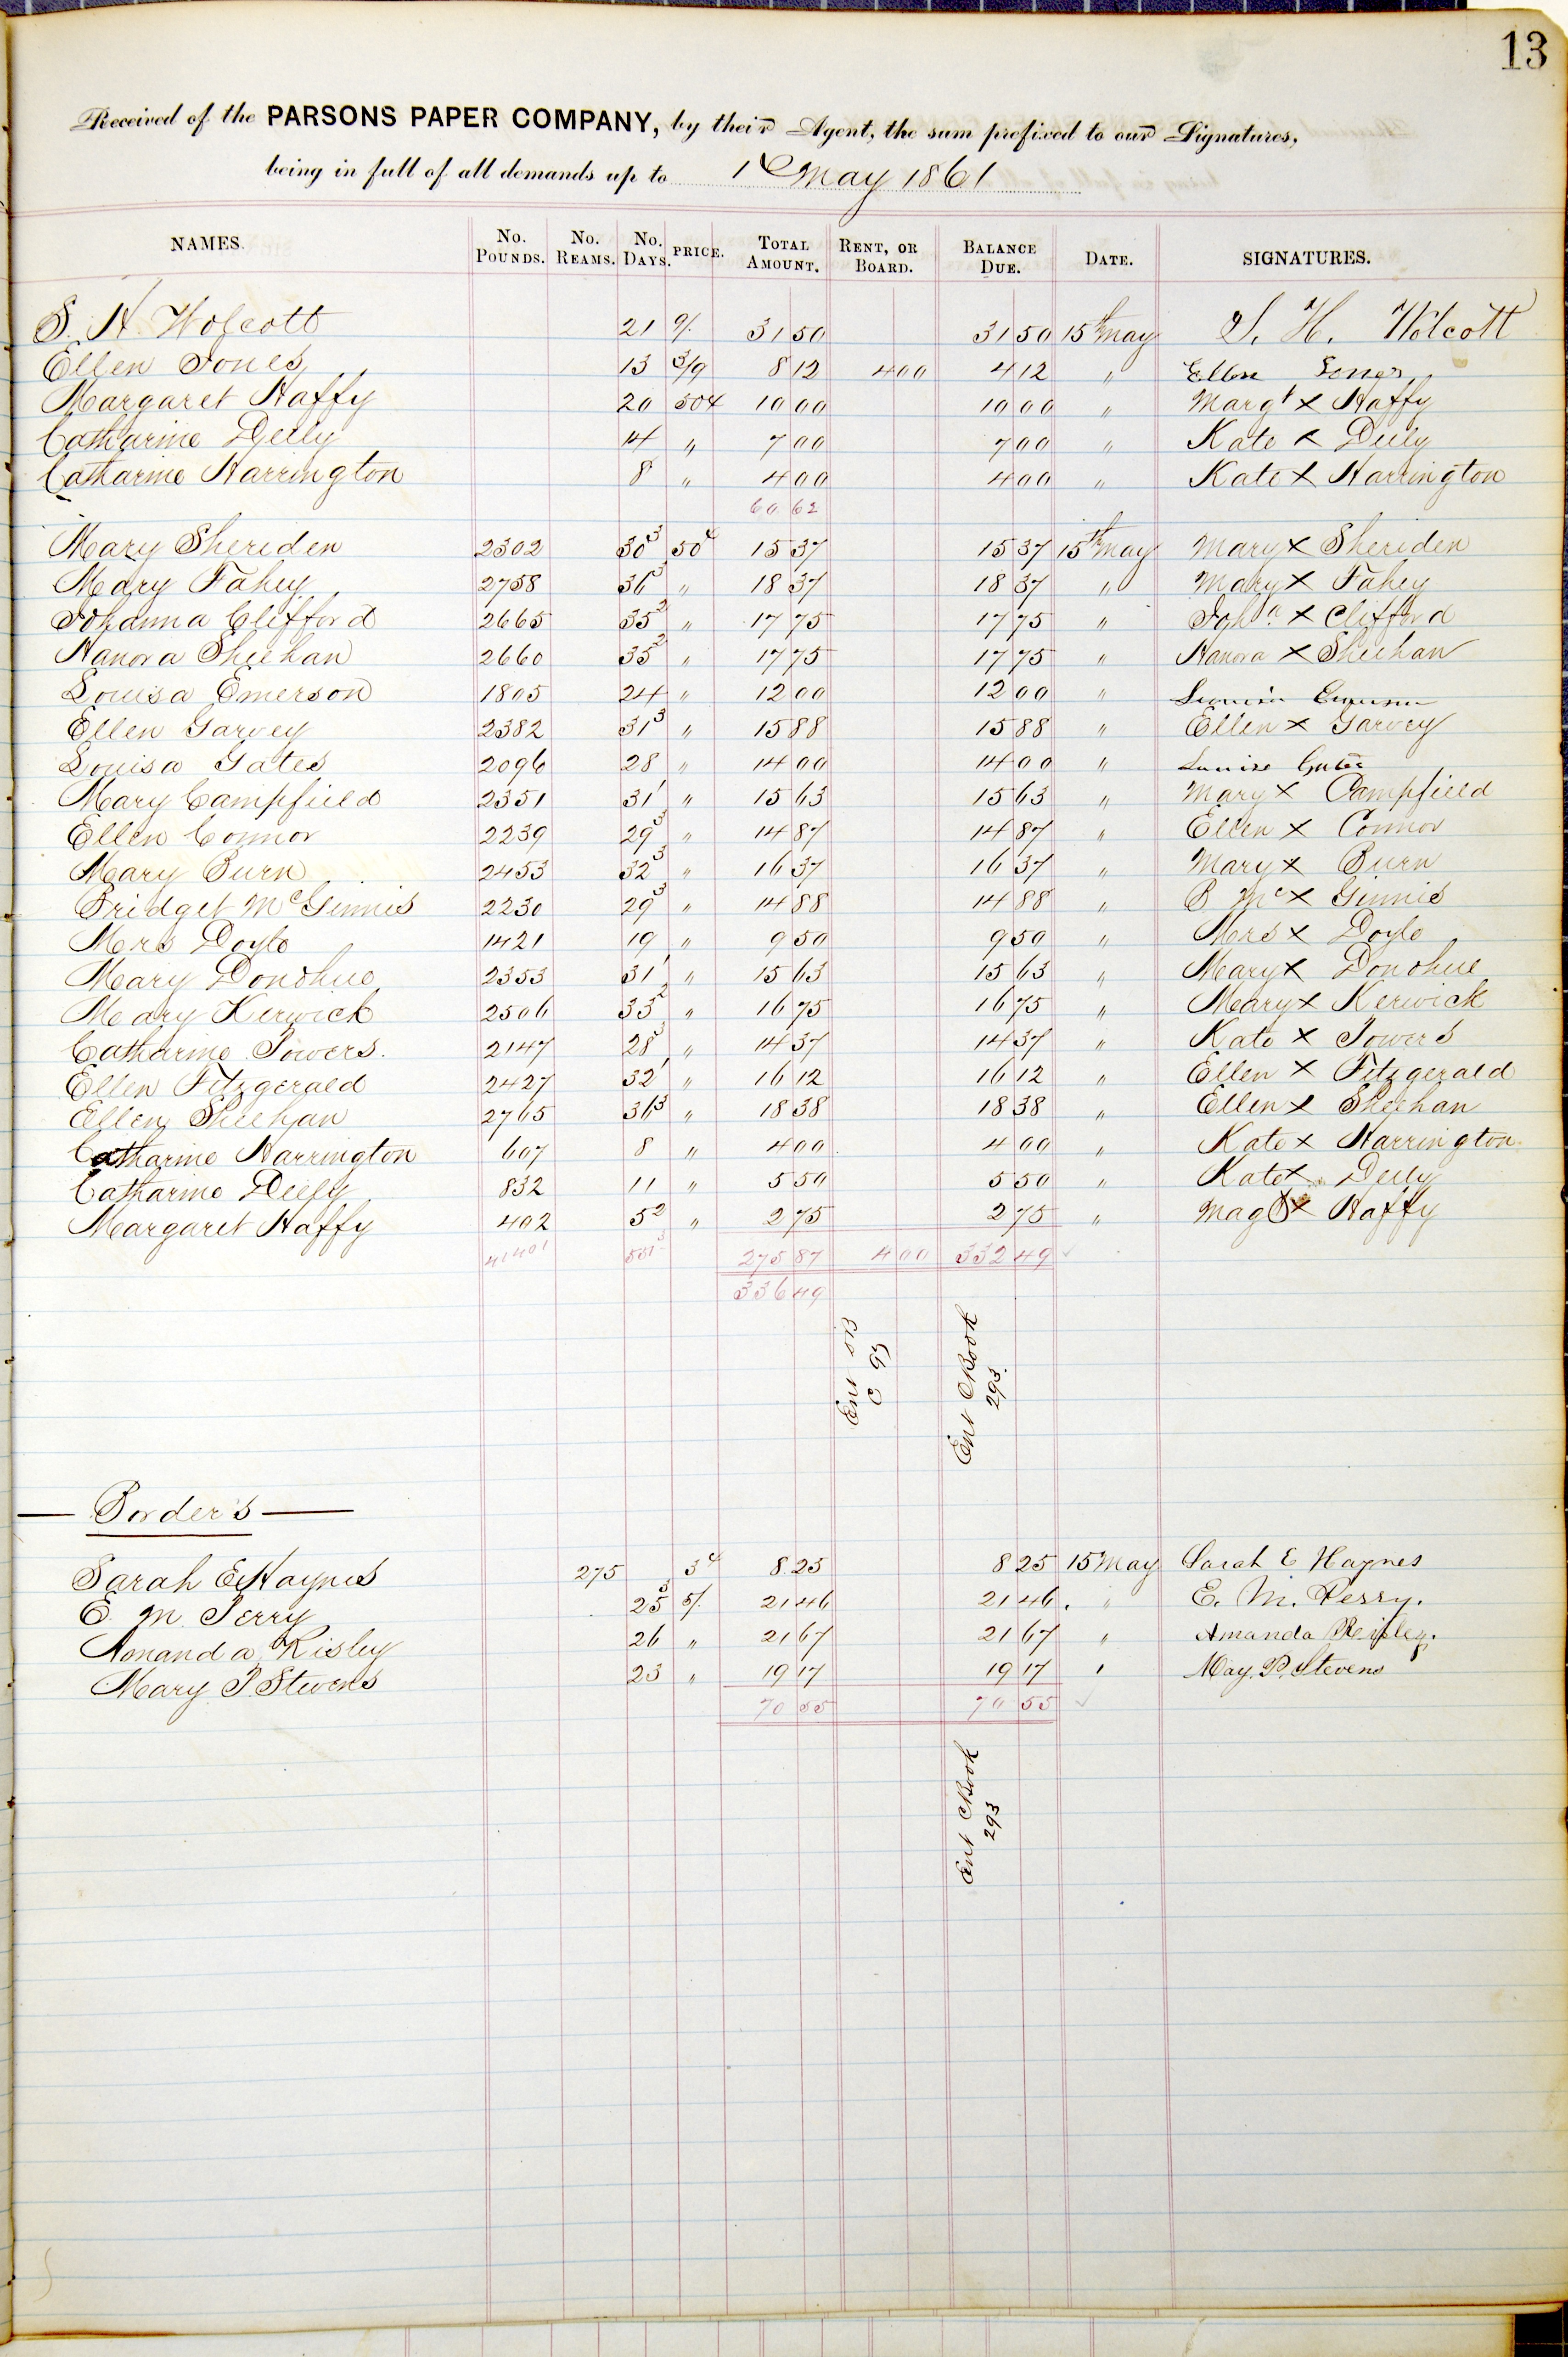 13
Received of the PARSONS PAPER COMPANY, by their Agent, the sum prefixed to our Signatures,
being in full of all demands up to 1 May 1861
NAMES. No. POUNDS. No. REAMS. No. DAYS. PRICE. TOTAL AMOUNT. RENT, OR BOARD. BALANCE DUE. DATE. SIGNATURES.
S. H. Wolcott 21 9/. 31 50 31 50 15th May S. H. Wolcott
Ellen Jones 13 3/9 8 12 4 00 4 12 " Ellen Jones
Margaret Haffy 20 50c 10 00 10 00 " Margt X Haffy
Catharine Deely 14 " 7 00 7 00 " Kate X Deely
Catharine Harrington 8 " 4 00 4 00 " Kate X Harrington
60 62
Mary Sheriden 2302 30³ 50c 15 37 15 37 15th May Mary X Sheriden
Mary Fahey 2758 36³ " 18 37 18 37 " Mary X Fahey
Johanna Clifford 2665 35² " 17 75 17 75 " Joha X Clifford
Hanora Sheehan 2660 35² " 17 75 17 75 " Hanora X Sheehan
Louisa Emerson 1805 24 " 12 00 12 00 " Louisa Emerson
Ellen Garvey 2382 31³ " 15 88 15 88 " Ellen X Garvey
Louisa Gates 2096 28 " 14 00 14 00 " Louise Gates
Mary Campfield 2351 31¹ " 15 63 15 63 " Mary X Campfield
Ellen Connor 2239 29³ " 14 87 14 87 " Ellen X Connor
Mary Burn 2453 32³ " 16 37 16 37 " Mary X Burn
Bridget McGinnis 2230 29³ " 14 88 14 88 " B Mc X Ginnis
Mrs Doyle 1421 19 " 9 50 9 50 " Mrs X Doyle
Mary Donohue 2353 31¹ " 15 63 15 63 " Mary X Donohue
Mary Kerwick 2506 33² " 16 75 16 75 " Mary X Kerwick
Catharine Powers. 2147 28³ " 14 37 14 37 " Kate X Powers
Ellen Fitzgerald 2427 32¹ " 16 12 16 12 " Ellen X Fitzgerald
Ellen Sheehan 2765 36³ " 18 38 18 38 " Ellen X Sheehan
Catharine Harrington 607 8 " 4 00 4 00 " Kate X Harrington
Catharine Deely 832 11 " 5 50 5 50 " Kate X Deely
Margaret Haffy 402 5² " 2 75 2 75 " Magt X Haffy
41401 551³ 275 87 4 00 332 49 ✓
336 49
Ent DB
C 93
Ent CBook
293.
— Borders —
Sarah E Haynes 275 3c 8.25 8 25 15 May Sarah E Haynes
E. M. Perry 25³ 5/. 21 46 21 46. " E. M. Perry.
Amanda Risley 26 " 21 67 21 67 " Amanda Risley.
Mary P Stevens 23 " 19 17 19 17 " May. P. Stevens
70 55 70 55 ✓
Ent CBook
293